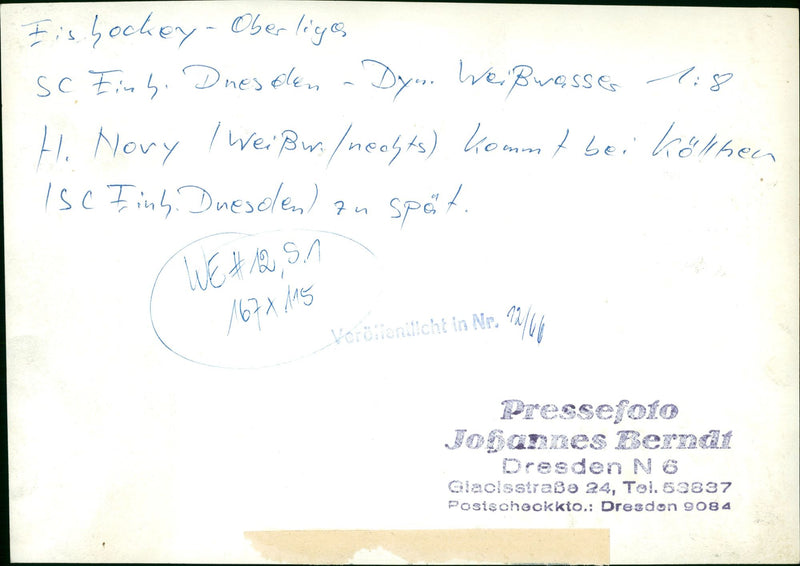 Eishockey-Oberliga
SC Einh. Dresden - Dyn. Weißwasser 1:8
H. Novy (Weißw./rechts) kommt bei
(SC Einh. Dresden) zu spät.
WE # 12, S.1
167x115
Veröffentlicht in Nr. 12/66
Pressefoto
Johannes Berndt
Dresden N 6
Glacisstraße 24, Tel. 53837
Postscheckkto.: Dresden 9084